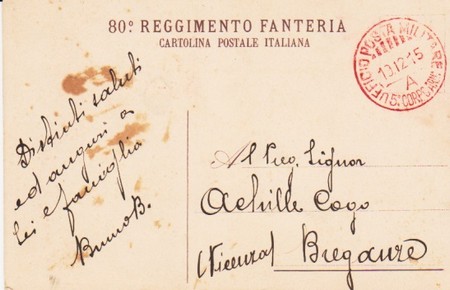 80º REGGIMENTO FANTERIA
CARTOLINA POSTALE ITALIANA
UFFICIO POSTA MILITARE
10.12.15
A
5º CORPO ARM
Distinti saluti
ed auguri a
Lei e famiglia
Bruno B.
Al Preg. Signor
Achille Cogo
(Vicenza) Breganze